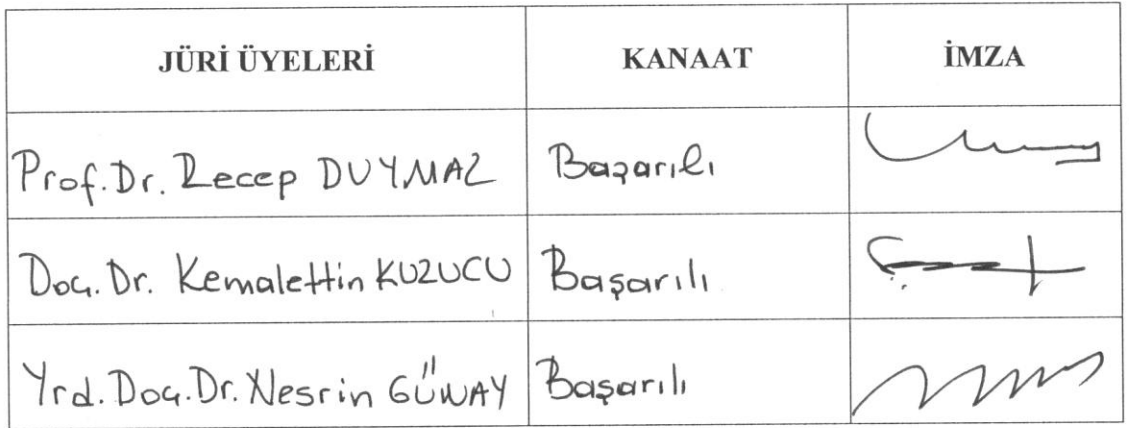 JÜRİ ÜYELERİ KANAAT İMZA
Prof. Dr. Recep DUYMAZ Başarılı
Doç. Dr. Kemalettin KUZUCU Başarılı
Yrd. Doç. Dr. Nesrin GÜNAY Başarılı